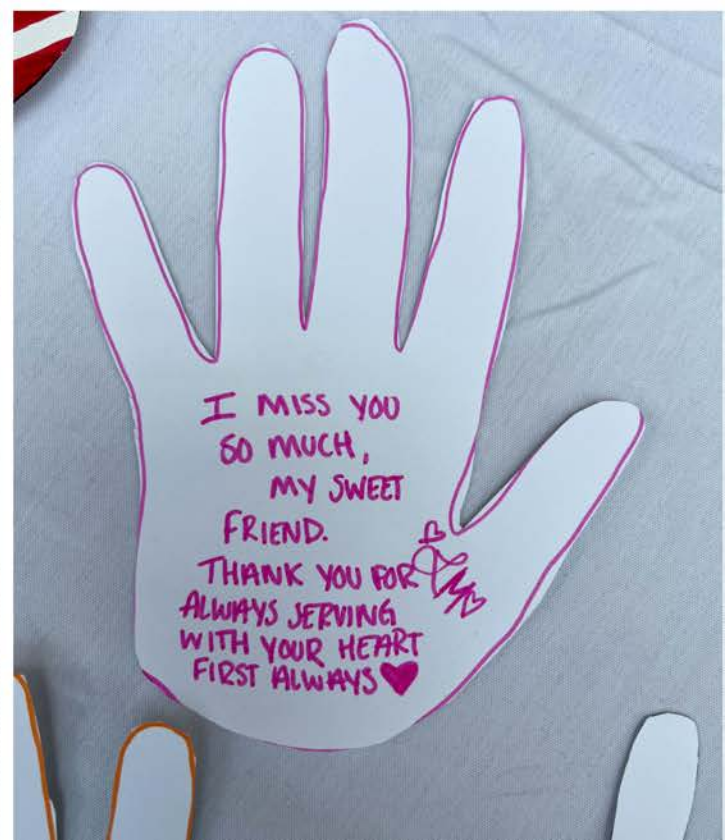 I MISS YOU
SO MUCH,
MY SWEET
FRIEND.
THANK YOU FOR
ALWAYS SERVING
WITH YOUR HEART
FIRST ALWAYS